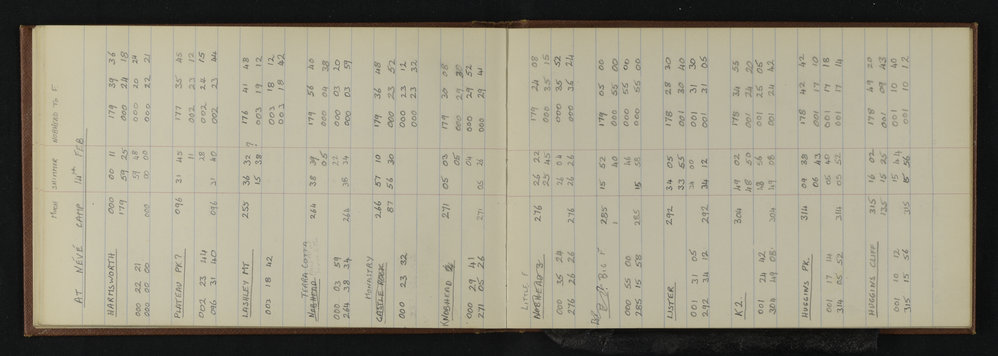 SHIMMER NOBHEAD TO F
AT NÉVÉ CAMP 14th FEB
HARMSWORTH 000 00 11 179 39 36
179 59 25 000 24 18
000 22 21 59 48 000 20 24
000 00 00 000 00 00 000 22 21
PLATEAU PK? 096 31 45 177 35 45
11 002 23 12
002 23 44 28 002 24 15
096 31 40 096 31 40 002 23 44
LASHLEY MT 255 36 32 ? 176 41 48
15 38 003 19 12
003 18 12
003 18 42 003 18 42
TERRA COTTA
NOBHEAD 264 38 39 179 56 40
05 000 03 38
000 03 59 22 000 03 20
264 38 34 264 38 34 000 03 59
MONASTRY
CASTLE ROCK 266 57 10 179 36 48
87 56 30 000 23 52
000 23 32 000 23 12
000 23 32
KNOBHEAD 271 05 03 179 30 08
05 000 29 30
000 29 41 04 000 29 52
271 05 26 271 05 26 000 29 41
LITTLE F
NOBHEAD 2 276 26 22 179 24 08
25 45 000 35 15
000 35 24 26 04 000 35 52
276 26 26 276 26 26 000 35 24
BIG F 285 15 52 179 05 00
1 40 000 55 00
000 55 00 46 000 55 00
285 15 58 285 15 58 000 55 00
LISTER 292 34 05 178 28 20
33 55 001 30 40
001 31 05 34 00 001 31 30
292 34 12 292 34 12 001 31 05
K2 304 49 02 178 34 55
48 50 001 24 20
001 24 42 48 56 001 25 05
304 49 08 304 49 08 001 24 42
HUGGINS PK. 314 09 38 178 42 42
06 43 001 17 10
001 17 14 05 40 001 17 18
314 05 52 314 05 52 001 17 14
HUGGINS CLIFF 315 16 02 178 49 20
135 15 25 001 09 43
001 10 12 15 44 001 10 40
315 15 56 315 15 56 001 10 12